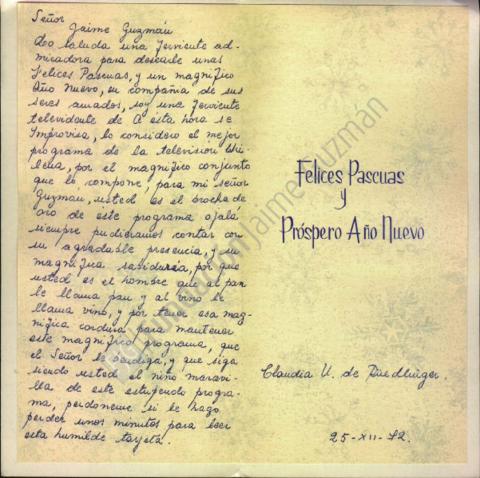 Señor
Jaime Guzmán
Lo saluda una ferviente ad-
miradora para desearle unas
Felices Pascuas, y un magnífico
Año Nuevo, en compañía de sus
seres amados, soy una ferviente
televidente de A esta hora se
Improvisa, lo considero el mejor
programa de la televisión Chi-
lena, por el magnífico conjunto
que lo compone, para mi señor
Guzmán, usted es el broche de
oro de este programa ojalá
siempre pudieramos contar con
su agradable presencia, y su
magnífica sabiduría, por que
usted es el hombre que al pan
le llama pan y al vino le
llama vino, y por tener esa mag-
nífica cordura para mantener
este magnífico programa, que
el Señor le bendiga, y que siga
siendo usted el niño maravi-
lla de este estupendo progra-
ma, perdoneme si le hago
perder unos minutos para leer
esta humilde tarjeta.
Felices Pascuas
y
Próspero Año Nuevo
Claudia U. de
25-XII-72.
Fundación Jaime Guzmán